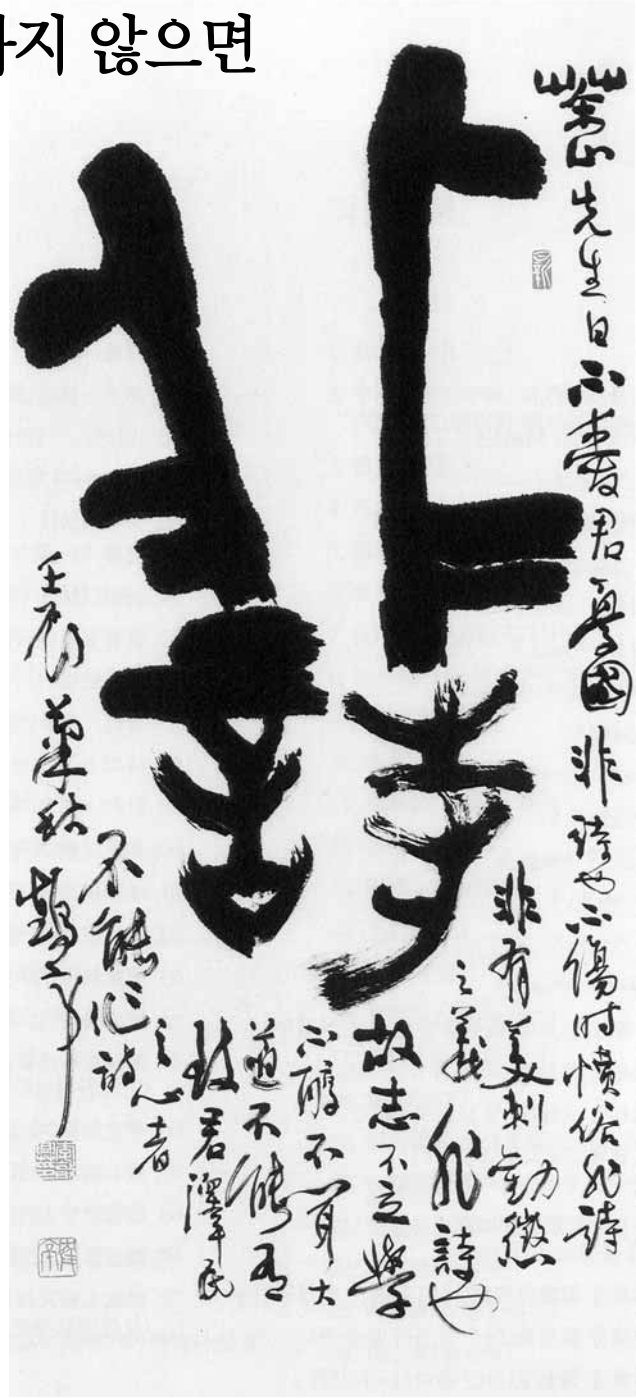 지 않으면
非詩
茶山先生曰不愛君憂國非詩也不傷時憤俗非詩
非有美刺勸懲
之義非詩也
故志不立學
不醇不聞大
道不能有
致君澤民
之心者
不能作詩
壬辰 秋 鶴亭